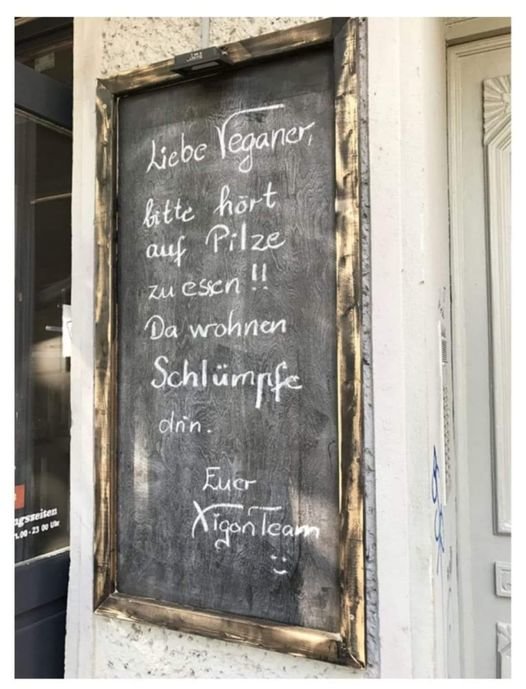 Liebe Veganer,
bitte hört
auf Pilze
zu essen!!
Da wohnen
Schlümpfe
drin.
Euer
Xigon Team
:)
ngszeiten
.00-23 00 Uhr